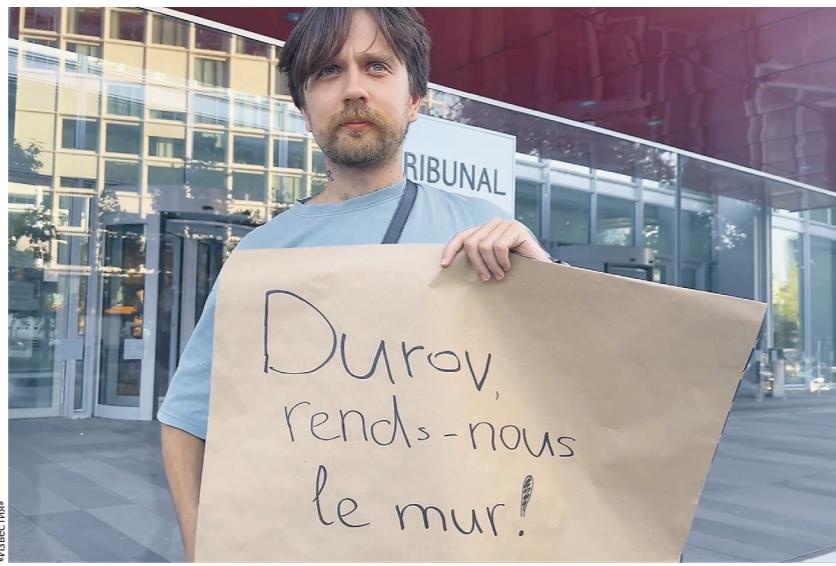 RIBUNAL
Durov,
rends-nous
le mur!
«ИЗВЕСТИЯ»